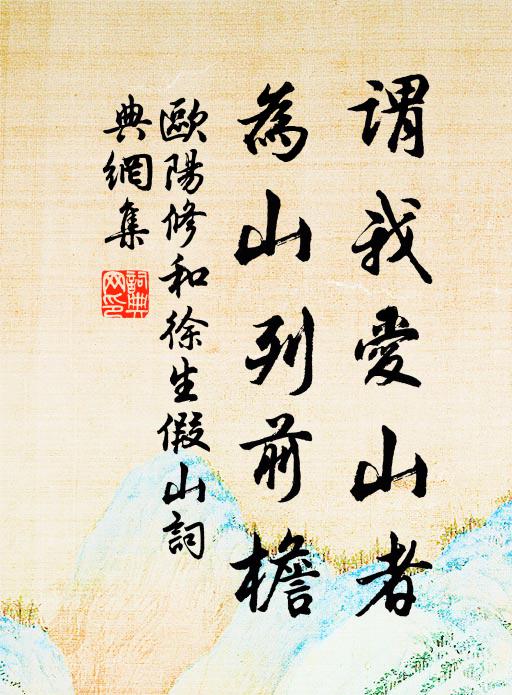 謂我愛山者
為山列前檐
歐陽修和徐生假山詞
典網集
詞典
网印